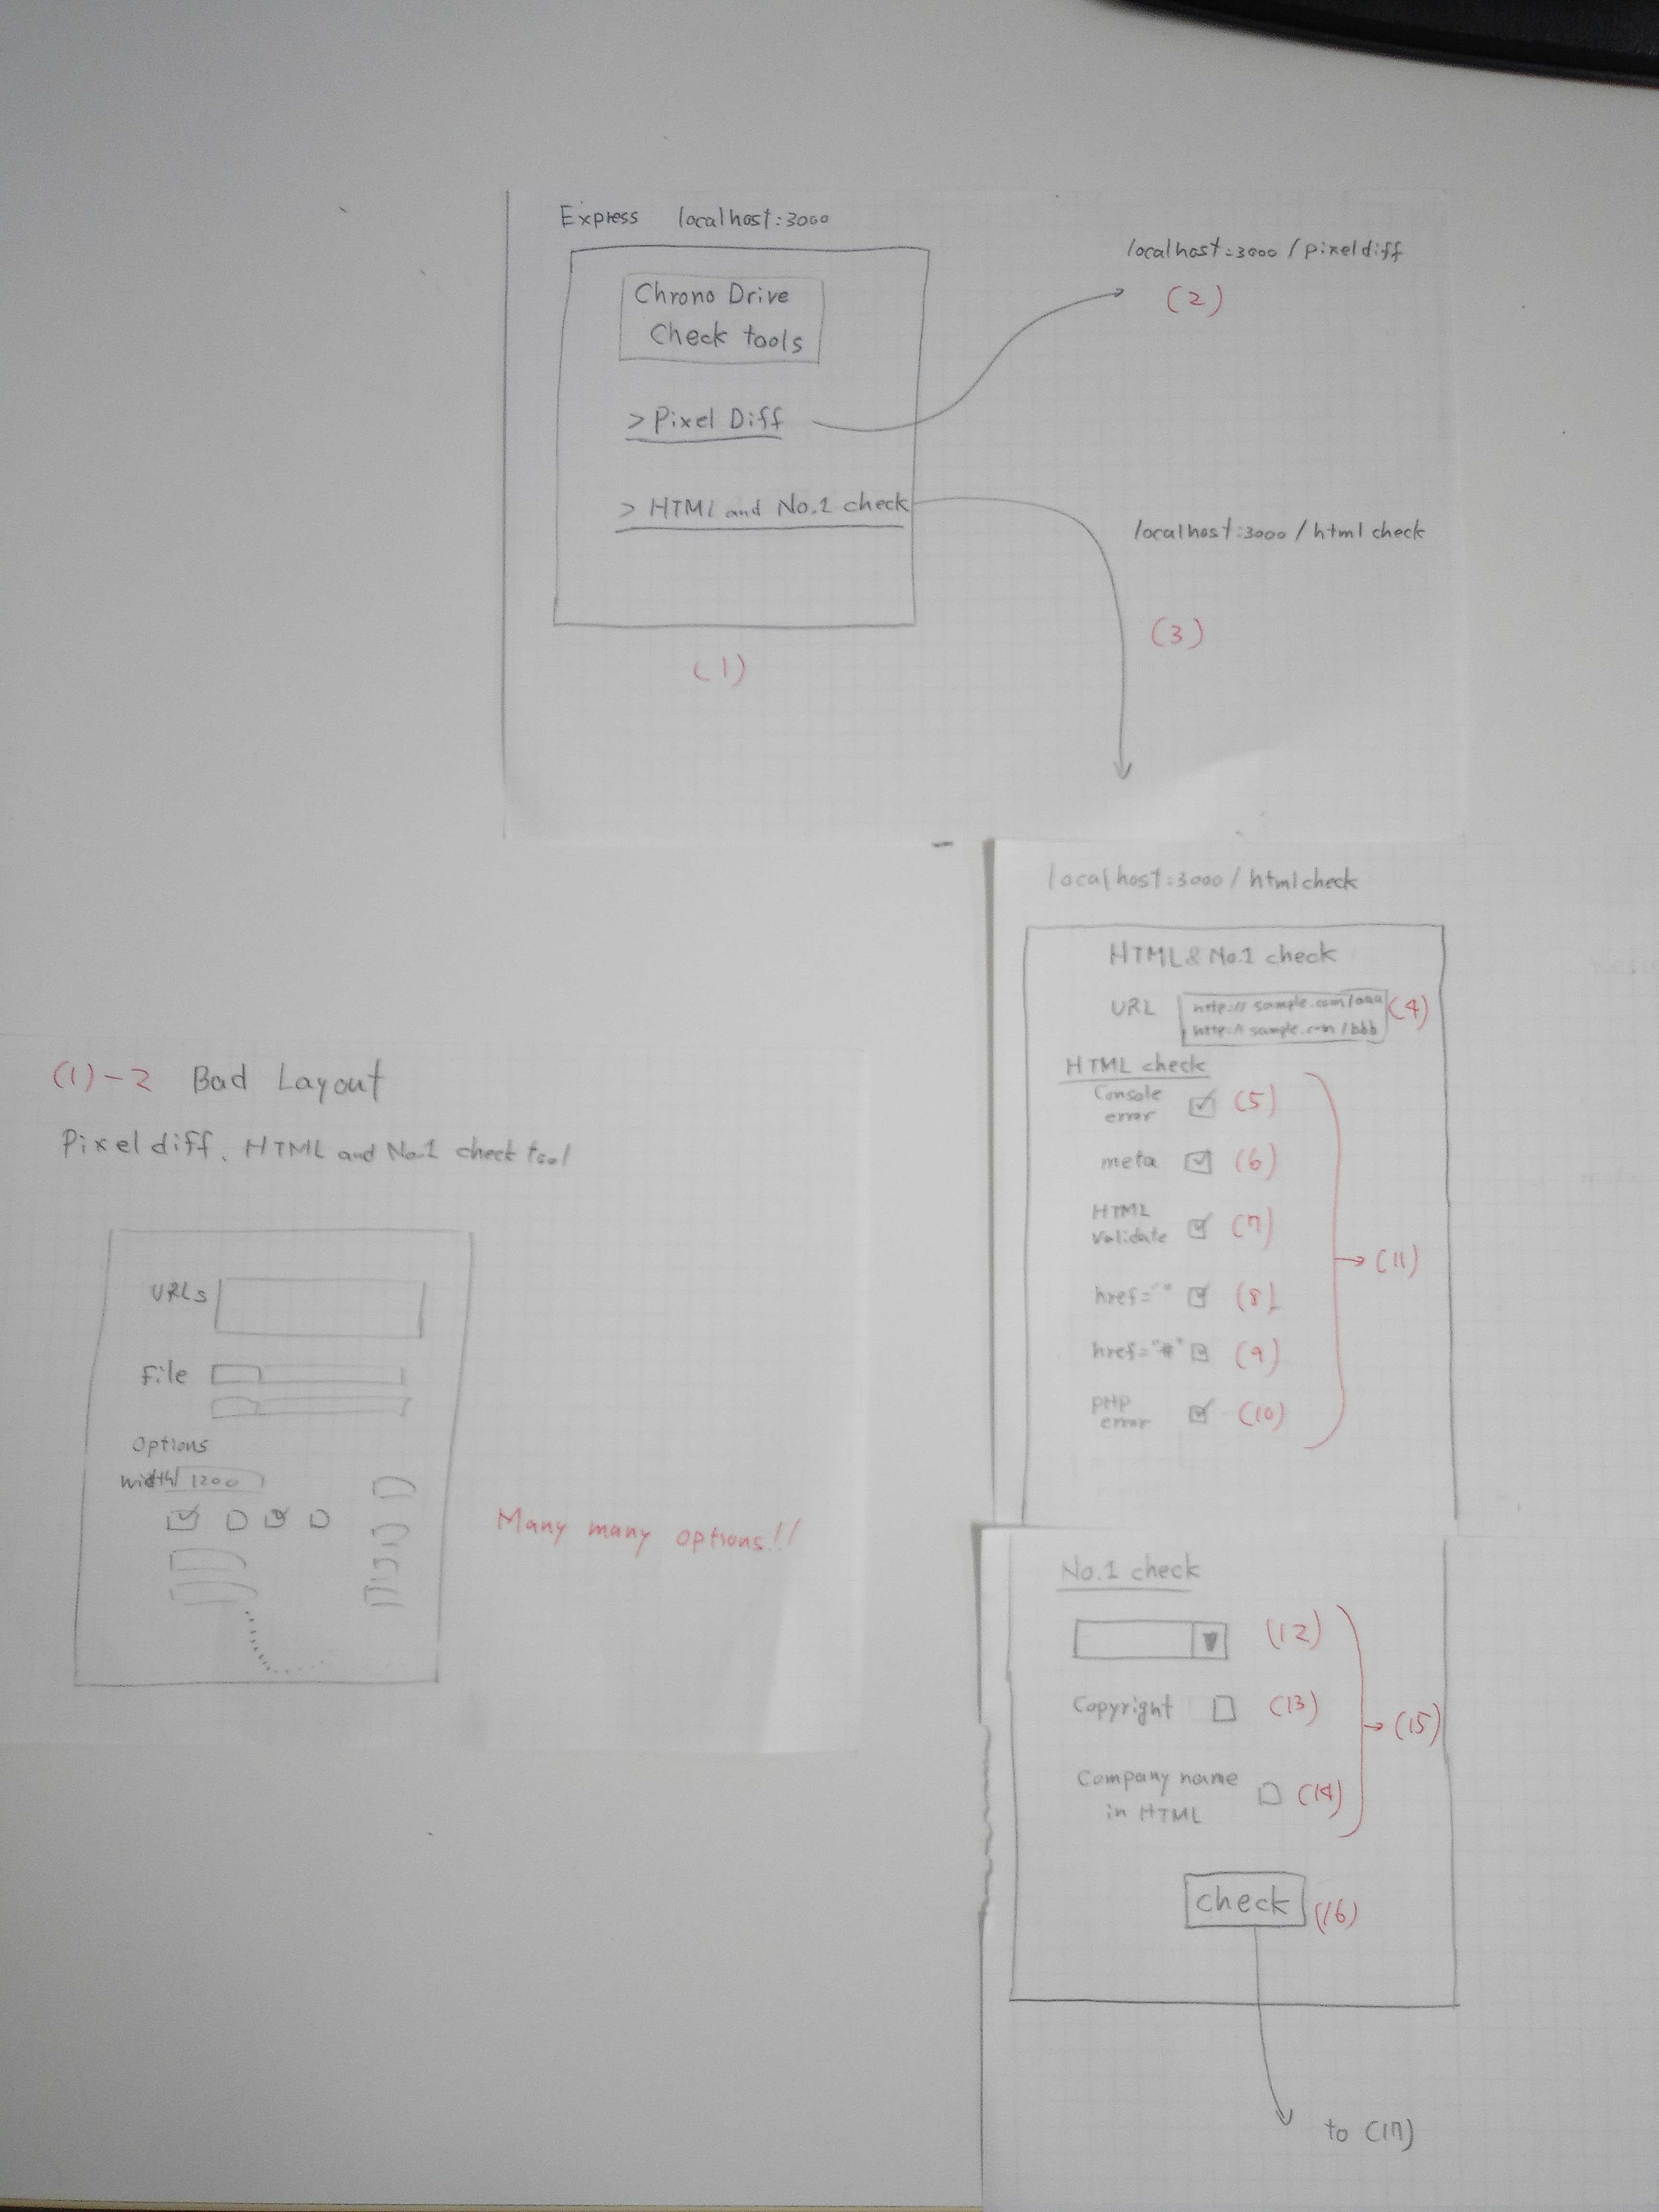 Express localhost:3000
Chrono Drive
Check tools
> Pixel Diff
> HTMl and No.1 check
(1)
localhost:3000/pixeldiff
(2)
localhost:3000/html check
(3)
(1)-2 Bad Layout
Pixel diff. HTML and No.1 check tool
URLs
File
Options
width 1200
Many many options!!
localhost:3000/htmlcheck
HTML & No.1 check
URL http:// sample.com/aaa (4)
http:// sample.com/bbb
HTML check
Console
error (5)
meta (6)
HTML
Validate (7)
href="" (8)
href="#" (9)
PHP
error (10)
(11)
No.1 check
(12)
Copyright (13)
Company name
in HTML (14)
(15)
check (16)
to (17)